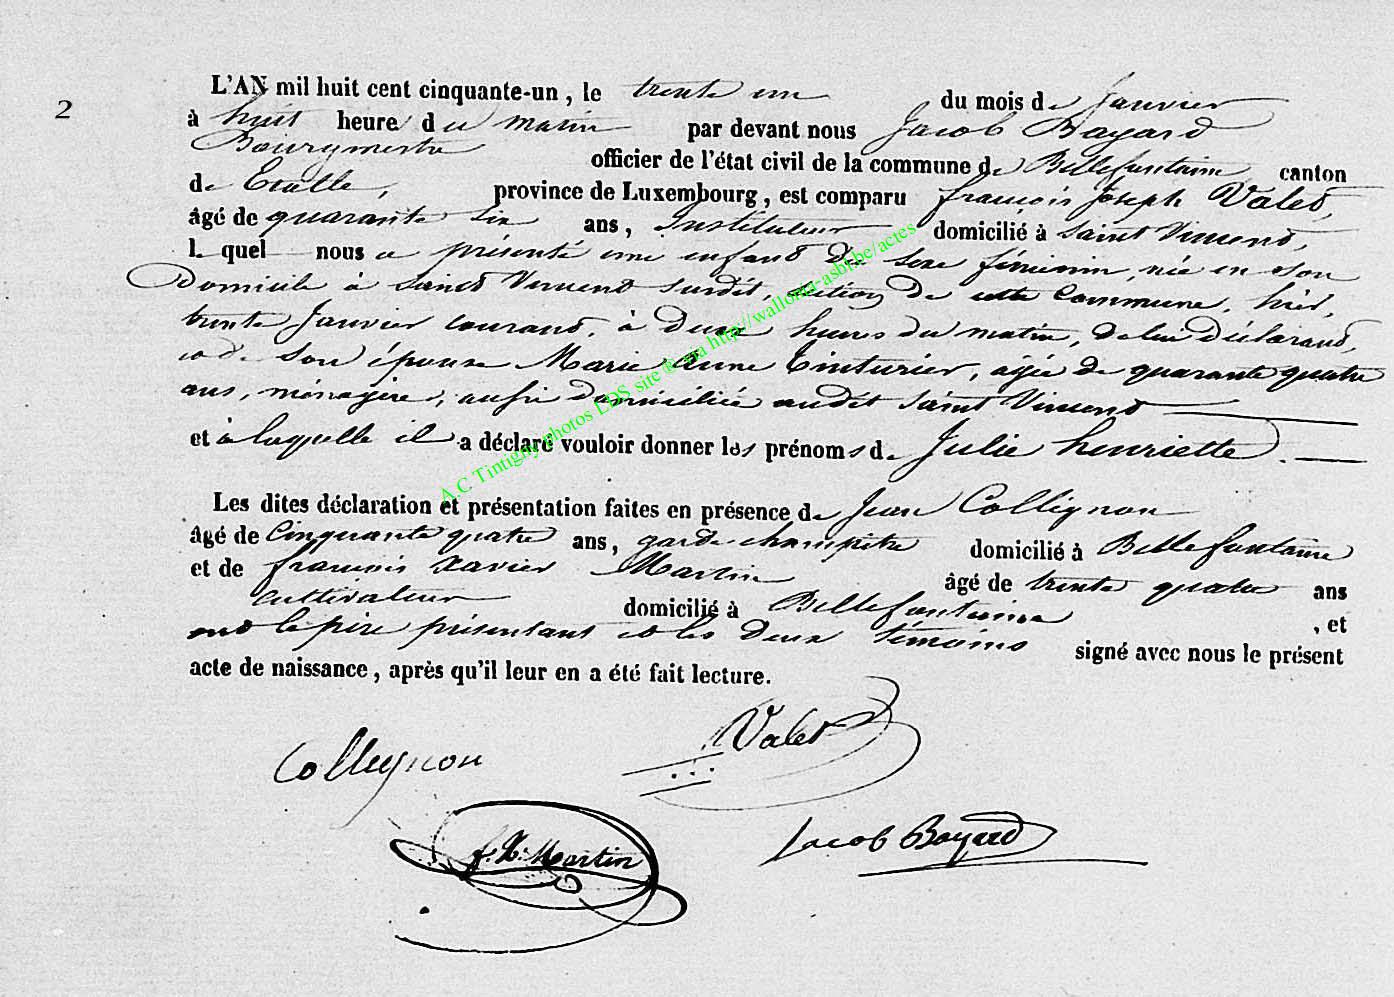 2
L'AN mil huit cent cinquante-un, le trente un du mois de Janvier
à huit heure du matin par devant nous Jacob Bayard
Bourgmestre officier de l'état civil de la commune de Bellefontaine canton
de Etalle, province de Luxembourg, est comparu françois Joseph Valet,
âgé de quarante six ans, Instituteur domicilié à Saint Vincent,
lequel nous a présenté une enfant de sexe féminin, née en son
Domicile à Saint Vincent susdit, section de cette commune, hier,
trente Janvier courant, à deux heures du matin, de lui déclarant,
et de son épouse Marie Anne Tinturier, agée de quarante quatre
ans, ménagère, aussi domiciliée audit Saint Vincent
et à laquelle il a déclaré vouloir donner les prénoms de Julie henriette.
Les dites déclaration et présentation faites en présence de Jean Collignon
âgé de Cinquante quatre ans, garde champêtre domicilié à Bellefontaine
et de françois Xavier Martin âgé de trente quatre ans
cultivateur domicilié à Bellefontaine, et
ont le père présentant et les deux témoins signé avec nous le présent
acte de naissance, après qu'il leur en a été fait lecture.
Collignon
Valet
f. X. Martin
Jacob Bayard
A.C Tintigny photos LDS site ® via http://wallonia-asbl.be/actes